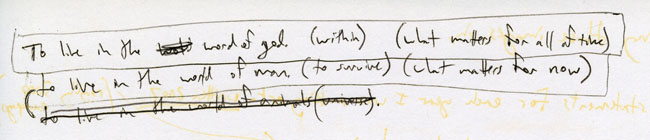 To live in the word of god. (within) (what matters for all of time)
(to live in the world of man. (to survive) (what matters for now)
to live in the world of animals (universe).
statements for each year I